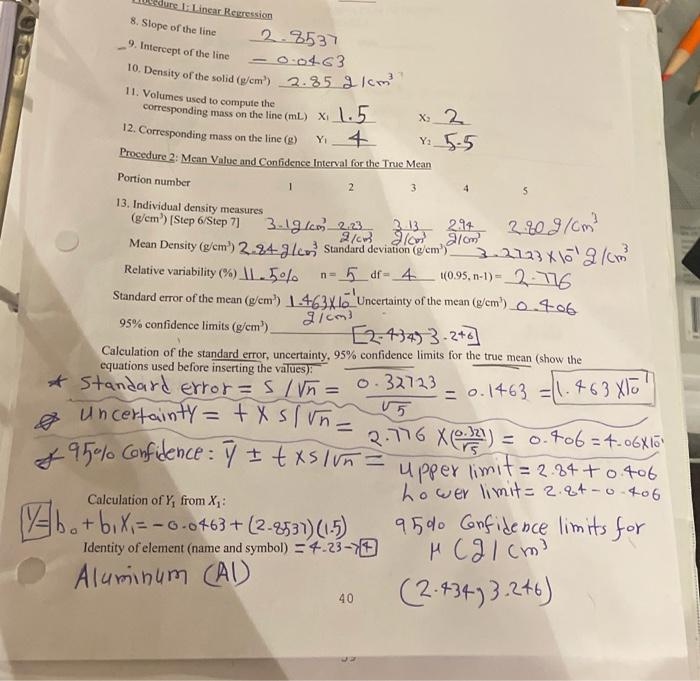 Procedure 1: Linear Regression
8. Slope of the line 2.8537
9. Intercept of the line -0.0463
10. Density of the solid (g/cm³) 2.85 g/cm³
11. Volumes used to compute the
corresponding mass on the line (mL) X₁ 1.5 X₂ 2
12. Corresponding mass on the line (g) Y₁ 4 Y₂ 5.5
Procedure 2: Mean Value and Confidence Interval for the True Mean
Portion number 1 2 3 4 5
13. Individual density measures
(g/cm³) [Step 6/Step 7] 3.1g/cm³ 2.23 g/cm³ 3.13 g/cm³ 2.94 g/cm³ 2.80g/cm³
Mean Density (g/cm³) 2.84g/cm³ Standard deviation (g/cm³) 3.2723X10⁻¹g/cm³
Relative variability (%) 11.5% n= 5 df= 4 t(0.95, n-1)= 2.776
Standard error of the mean (g/cm³) 1.463X10⁻¹ g/cm³ Uncertainty of the mean (g/cm³) 0.406
95% confidence limits (g/cm³) [2.434,3.246]
Calculation of the standard error, uncertainty, 95% confidence limits for the true mean (show the
equations used before inserting the values):
* Standard error = S/√n = 0.32723/√5 = 0.1463 = 1.463X10⁻¹
Uncertainty = t X s/√n = 2.776 X(0.321/√5) = 0.406=4.06X10⁻¹
* 95% Confidence: ȳ ± t xs/√n = upper limit = 2.84+0.406
Lower limit= 2.84-0.406
Calculation of Y₁ from X₁:
Y=b₀+b₁X₁=-0.0463+(2.8537)(1.5)
=4.23→4
95% Confidence limits for
μ (g/cm³
Identity of element (name and symbol)
Aluminum (Al)
(2.434,3.246)
40